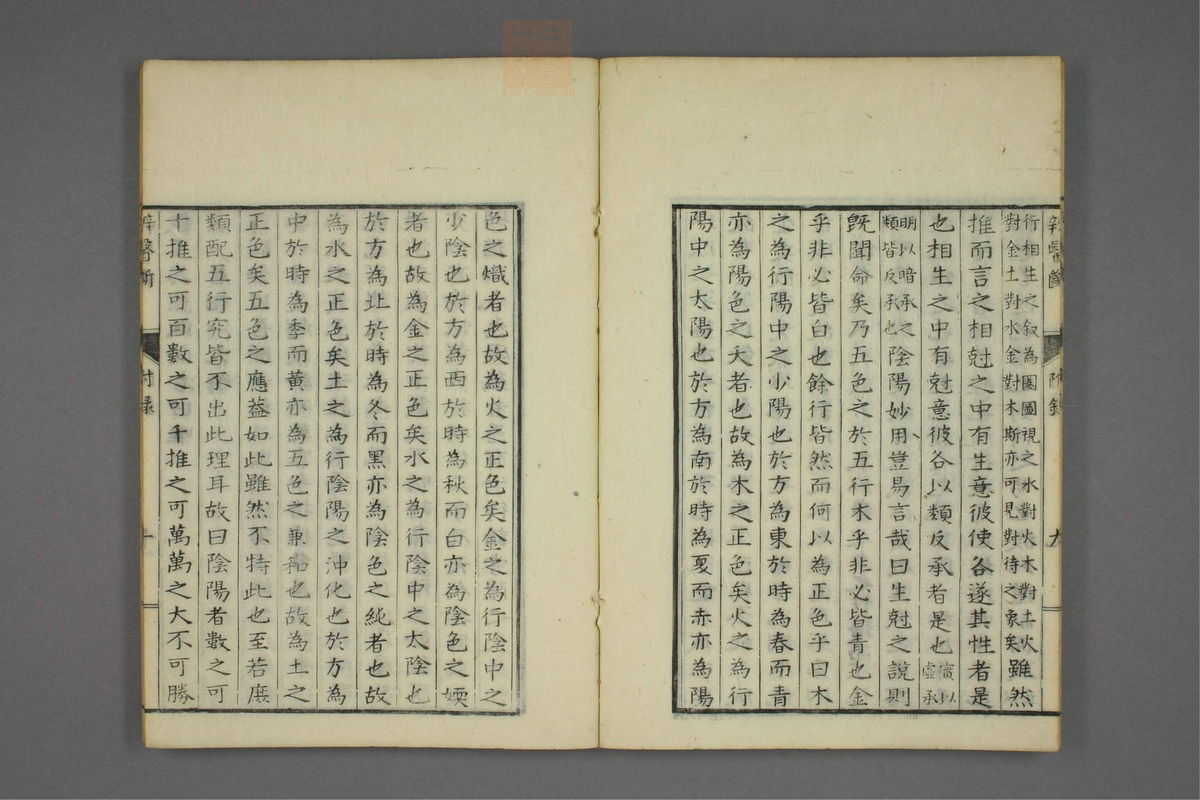 辨醫斷
附錄
九
行相生之叙為圖圖視之水對火木對土火
對金土對水金對木斯亦可見對待之象矣雖然
推而言之相尅之中有生意彼使各遂其性者是
也相生之中有尅意彼各以類反承者是也寅以
虛承
明以暗承之陰陽妙用豈易言哉曰生尅之說則
類皆反承也
既聞命矣乃五色之於五行木乎非必皆青也金
乎非必皆白也餘行皆然而何以為正色乎曰木
之為行陽中之少陽也於方為東於時為春而青
亦為陽色之夭者也故為木之正色矣火之為行
陽中之太陽也於方為南於時為夏而赤亦為陽
色之熾者也故為火之正色矣金之為行陰中之
少陰也於方為西於時為秋而白亦為陰色之
者也故為金之正色矣水之為行陰中之太陰也
於方為北於時為冬而黑亦為陰色之純者也故
為水之正色矣土之為行陰陽之沖化也於方為
中於時為季而黃亦為五色之兼和也故為土之
正色矣五色之應蓋如此雖然不特此也至若庶
類配五行究皆不出此理耳故曰陰陽者數之可
十推之可百數之可千推之可萬萬之大不可勝
辨醫斷
附錄
十